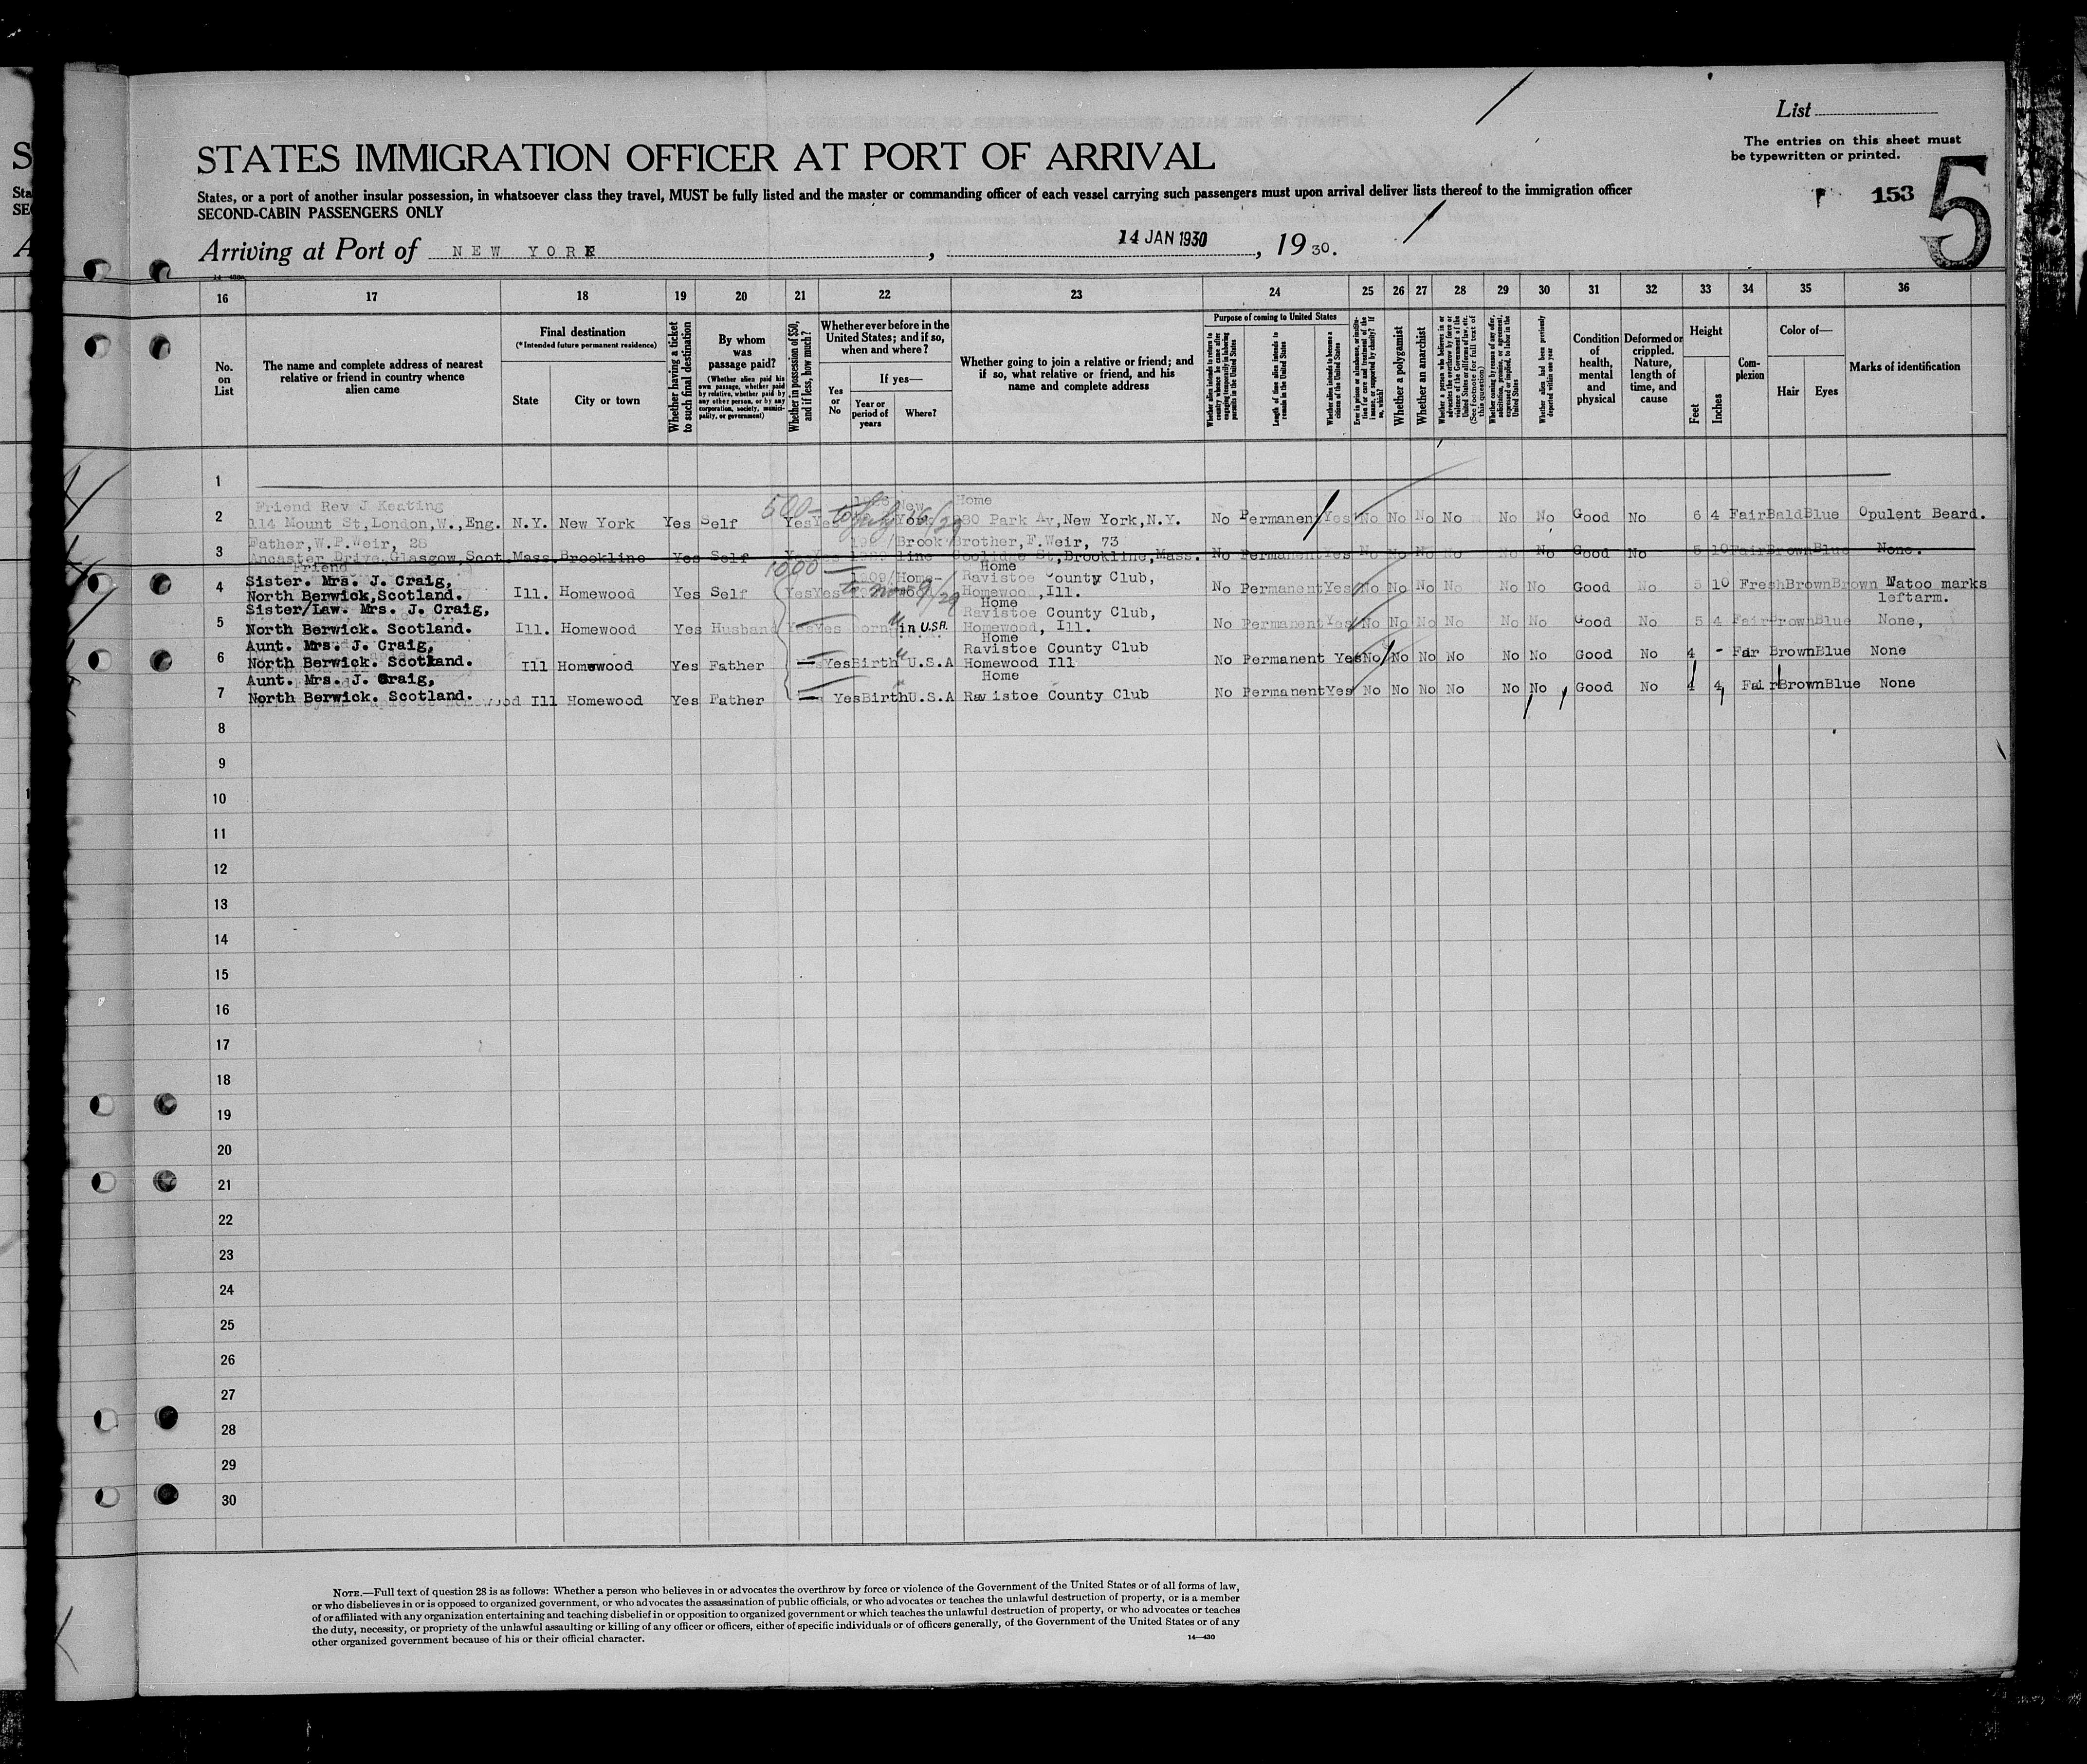 List
The entries on this sheet must
be typewritten or printed.
STATES IMMIGRATION OFFICER AT PORT OF ARRIVAL
153
5
States, or a port of another insular possession, in whatsoever class they travel, MUST be fully listed and the master or commanding officer of each vessel carrying such passengers must upon arrival deliver lists thereof to the immigration officer
SECOND-CABIN PASSENGERS ONLY
Arriving at Port of NEW YORK, 14 JAN 1930, 1930.
16 17 18 19 20 21 22 23 24 25 26 27 28 29 30 31 32 33 34 35 36
No. on List
The name and complete address of nearest relative or friend in country whence alien came
Final destination
(*Intended future permanent residence)
State
City or town
Whether having a ticket to such final destination
By whom was passage paid?
(Whether alien paid his own passage, whether paid by relative, whether paid by any other person, or by any corporation, society, municipality, or government)
Whether in possession of $50, and if less, how much?
Whether ever before in the United States; and if so, when and where?
Yes or No
If yes—
Year or period of years
Where?
Whether going to join a relative or friend; and if so, what relative or friend, and his name and complete address
Purpose of coming to United States
Whether alien intends to return to country whence he came after engaging temporarily in laboring pursuits in the United States
Length of time alien intends to remain in the United States
Whether alien intends to become a citizen of the United States
Ever in prison or almshouse, or institution for care and treatment of the insane, or supported by charity? If so, which?
Whether a polygamist
Whether an anarchist
Whether a person who believes in or advocates the overthrow by force or violence of the Government of the United States or all forms of law, etc. (See footnote for full text of this question)
Whether coming by reason of any offer, solicitation, promise, or agreement, expressed or implied, to labor in the United States
Whether alien had been previously deported within one year
Condition of health, mental and physical
Deformed or crippled. Nature, length of time, and cause
Height
Feet
Inches
Complexion
Color of—
Hair
Eyes
Marks of identification
1
Friend Rev J Keating 500— New Home
2 114 Mount St, London, W., Eng. N.Y. New York Yes Self Yes Yes York 980 Park Av, New York, N.Y. No Permanent Yes No No No No No No Good No 6 4 Fair Bald Blue Opulent Beard.
Father, W.P. Weir, 28 Brook Brother, F. Weir, 73
3 Ancaster Drive, Glasgow, Scot Mass. Brookline Yes Self Yes Yes line Coolidge St, Brookline, Mass. No Permanent Yes No No No No No No Good No 5 10 Fair Brown Blue None.
Friend 1000— Home
Sister. Mrs. J. Craig, 1909 Home- Ravistoe County Club,
4 North Berwick, Scotland. Ill. Homewood Yes Self Yes Yes Homewood, Ill. No Permanent Yes No No No No No No Good No 5 10 Fresh Brown Brown Natoo marks
leftarm.
Sister/Law. Mrs. J. Craig, Home
Ravistoe County Club,
5 North Berwick. Scotland. Ill. Homewood Yes Husband Yes Yes Born in U.S.A. Homewood, Ill. No Permanent Yes No No No No No No Good No 5 4 Fair Brown Blue None,
Aunt. Mrs. J. Craig, Home
Ravistoe County Club
6 North Berwick. Scotland. Ill Homewood Yes Father — Yes Birth U.S.A Homewood Ill No Permanent Yes No No No No No No Good No 4 - Fair Brown Blue None
Aunt. Mrs. J. Craig, Home
7 North Berwick. Scotland. Ill Homewood Yes Father — Yes Birth U.S.A Ravistoe County Club No Permanent Yes No No No No No No Good No 4 4 Fair Brown Blue None
8
9
10
11
12
13
14
15
16
17
18
19
20
21
22
23
24
25
26
27
28
29
30
NOTE.—Full text of question 28 is as follows: Whether a person who believes in or advocates the overthrow by force or violence of the Government of the United States or of all forms of law,
or who disbelieves in or is opposed to organized government, or who advocates the assassination of public officials, or who advocates or teaches the unlawful destruction of property, or is a member
of or affiliated with any organization entertaining and teaching disbelief in or opposition to organized government or which teaches the unlawful destruction of property, or who advocates or teaches
the duty, necessity, or propriety of the unlawful assaulting or killing of any officer or officers, either of specific individuals or of officers generally, of the Government of the United States or of any
other organized government because of his or their official character.
14—430